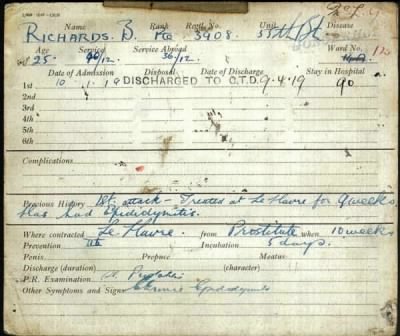 Name Rank Regtl. No. Unit Disease
RICHARDS. B. Pte 3908. 55th Bt
Age Service Service Abroad Ward No.
25. 40/12. 36/12. 12
Date of Admission Disposal Date of Disposal Stay in Hospital
1st 10. 1. 19 DISCHARGED TO C.T.D. 9.4.19 90
2nd
3rd
4th
5th
6th
Complications
Previous History 1st attack - Treated at Le Havre for 9 weeks
Has had Epididymitis.
Where contracted Le Havre. from Prostitute when 10 weeks
Prevention Incubation 5 days.
Penis Prepuce Meatus
Discharge (duration) (character)
P.R. Examination
Other Symptoms and Signs Chronic Epididymitis